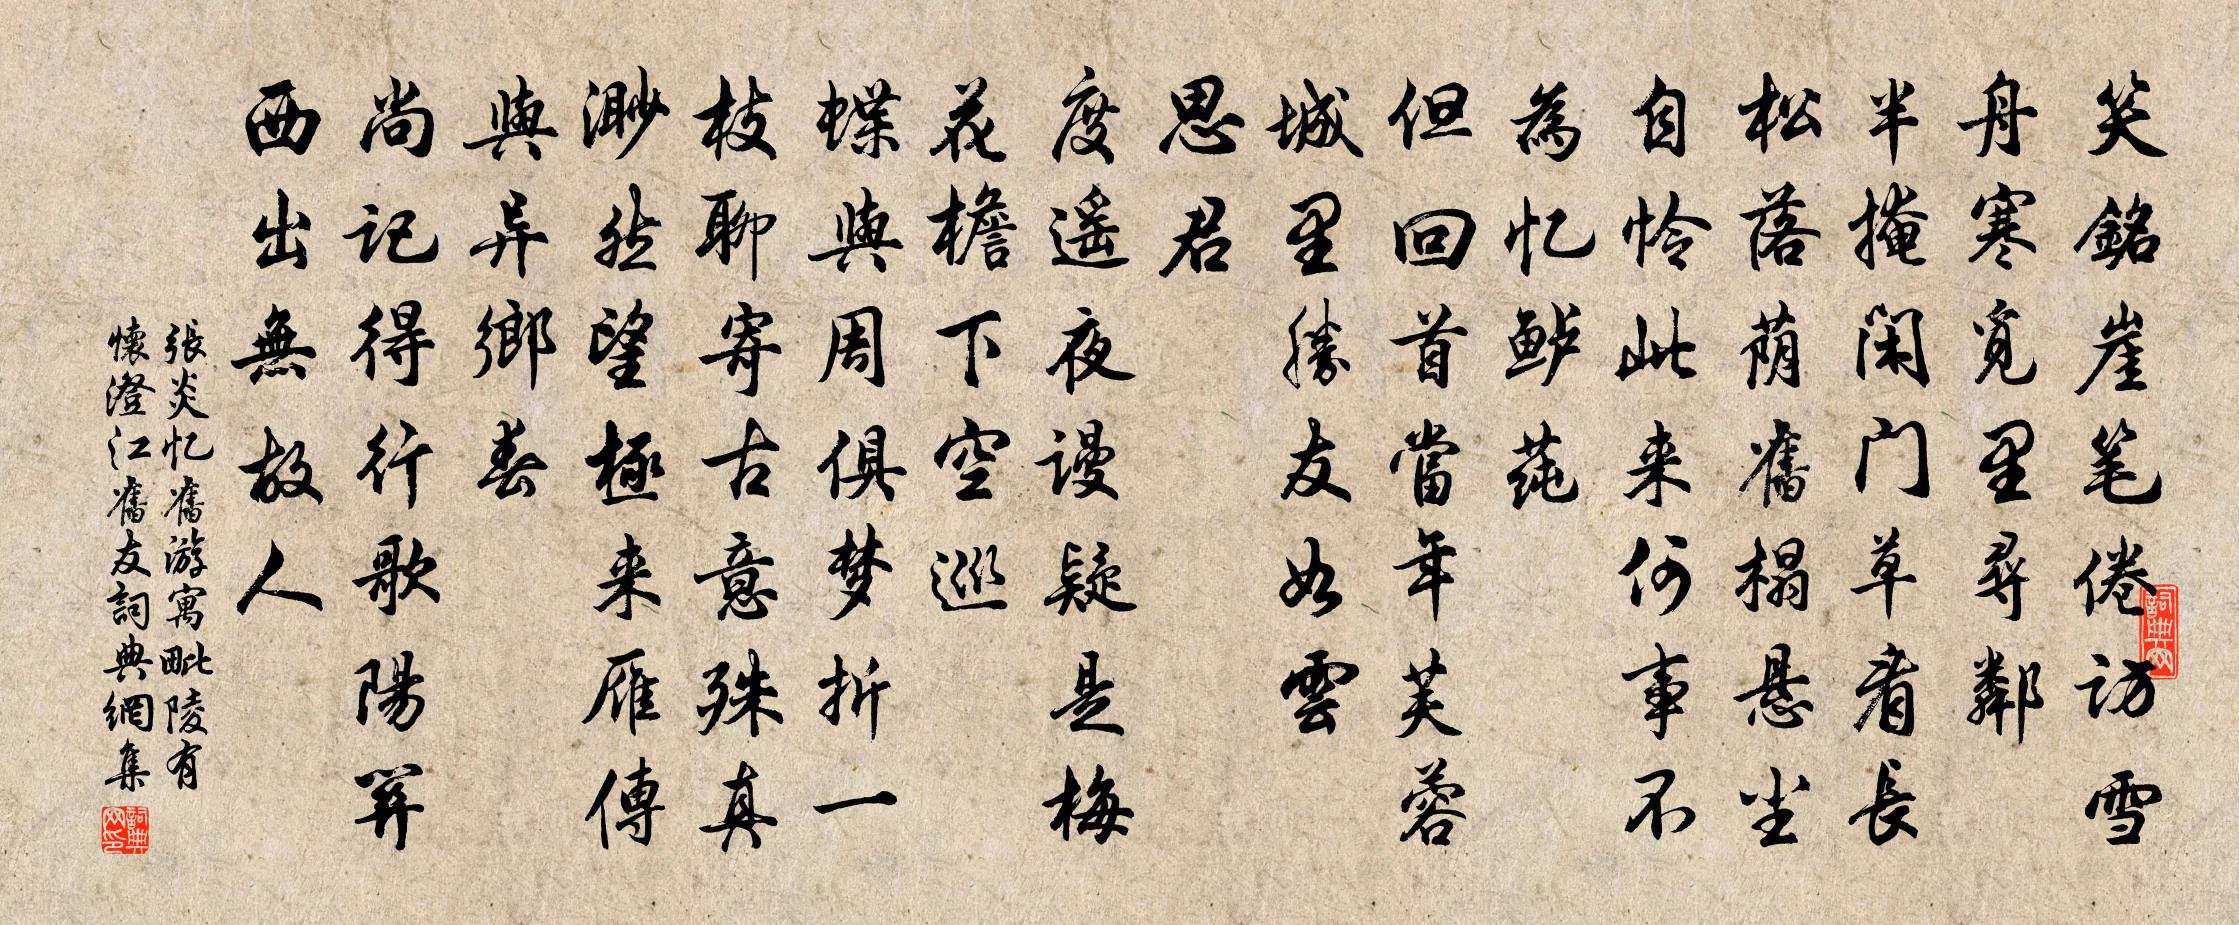 笑銘崖笔倦访雪
舟寒觅里尋鄰
半掩閑门草看長
松落荫舊榻悬尘
自怜此来何事不
為忆鲈莼
但回首當年芙蓉
城里勝友如雲
思君
度遥夜谩疑是梅
花檐下空巡
蝶與周俱梦折一
枝聊寄古意殊真
渺然望極来雁傳
與异鄉春
尚记得行歌陽関
西出無故人
張炎忆舊游寓毗陵有
懷澄江舊友詞典網集
詞典网
詞典网印